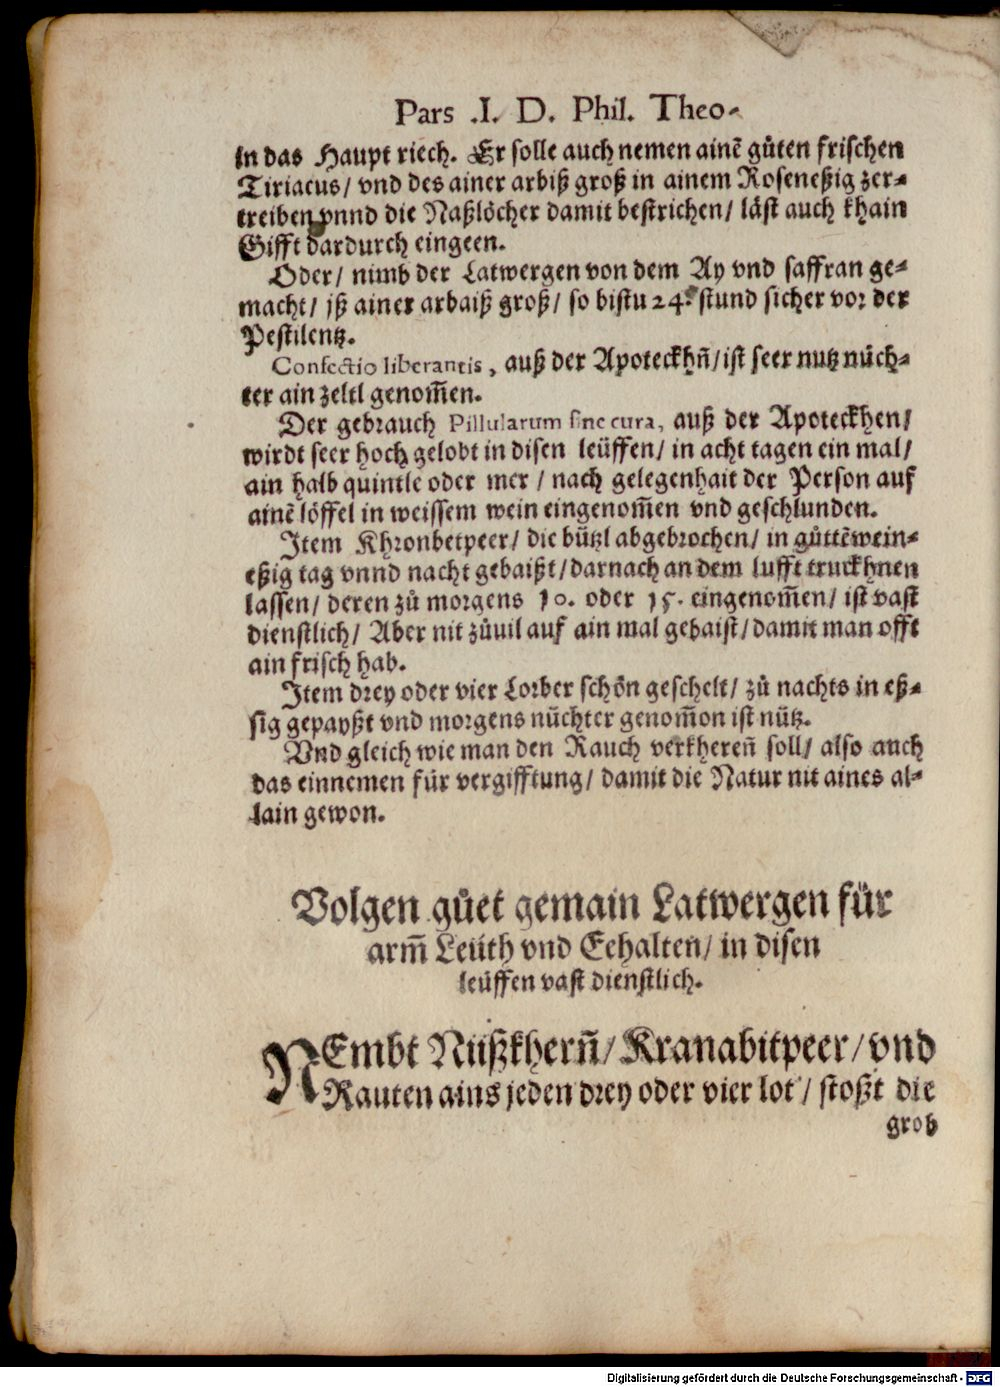 Pars .I. D. Phil. Theo-
in das Haupt riech. Er solle auch nemen ainē gůten frischen
Tiriacus/ vnd des ainer arbiß groß in ainem Roseneßig zer-
treiben vnnd die Naßlöcher damit bestrichen/ läst auch khain
Gifft dardurch eingeen.
Oder/ nimb der Latwergen von dem Ay vnd saffran ge-
macht/ jß ainer arbaiß groß/ so bistu 24. stund sicher vor der
Pestilentz.
Confectio liberantis, auß der Apoteckhn̄/ ist seer nutz nüch-
ter ain zeltl genom̄en.
Der gebrauch Pillularum sine cura, auß der Apoteckhen/
wirdt seer hoch gelobt in disen leüffen/ in acht tagen ein mal/
ain halb quintle oder mer / nach gelegenhait der Person auf
ainē löffel in weissem wein eingenom̄en vnd geschlunden.
Item Khronbetpeer/ die bützl abgebrochen/ in gůttēwein-
eßig tag vnnd nacht gebaißt/ darnach an dem lufft truckhnen
lassen/ deren zů morgens 10. oder 15. eingenom̄en/ ist vast
dienstlich/ Aber nit zůuil auf ain mal gebaist/ damit man offt
ain frisch hab.
Item drey oder vier Lorber schön geschelt/ zů nachts in eß-
sig gepayßt vnd morgens nüchter genom̄on ist nütz.
Vnd gleich wie man den Rauch verkheren̄ soll/ also auch
das einnemen für vergifftung/ damit die Natur nit aines al-
lain gewon.
Volgen gůet gemain Latwergen für
arm̄ Leüth vnd Eehalten/ in disen
leüffen vast dienstlich.
NEmbt Nüßkhern̄/ Kranabitpeer/ vnd
Rauten ains jeden drey oder vier lot / stoßt die
grob
Digitalisierung gefördert durch die Deutsche Forschungsgemeinschaft - DFG